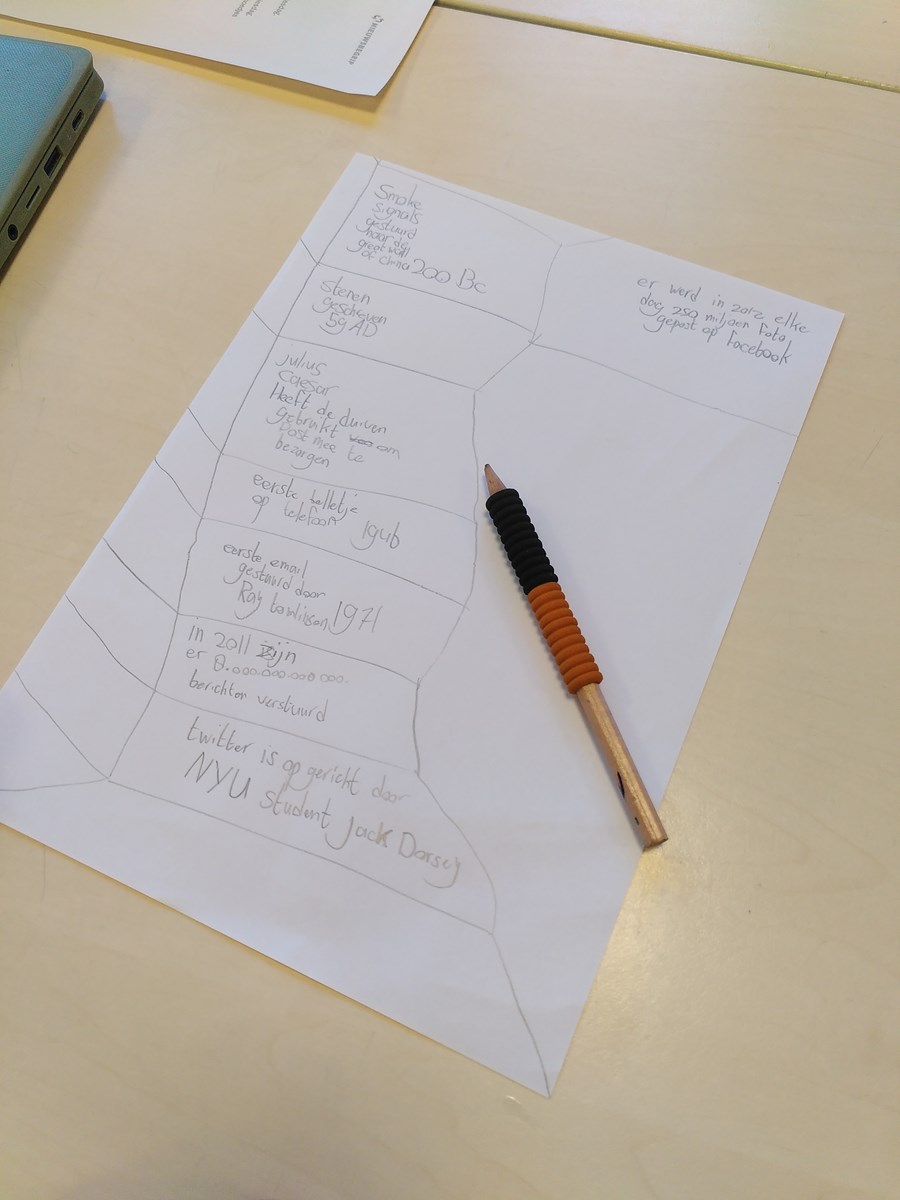 NIEUWSBEGRIP
Smoke
signals
gestuurd
naar de
great wall
of china 200 Bc
stenen
geschreven
59 AD
julius
caesar
Heeft de duiven
gebruikt om
post mee te
bezorgen
eerste belletje
op telefoon 1946
eerste email
gestuurd door
Ray tomlinson 1971
in 2011 zijn
er 8.000.000.000.000.
berichten verstuurd
twitter is op gericht door
NYU student Jack Dorsey
er werd in 2012 elke
dag 250 miljoen foto
gepost op facebook